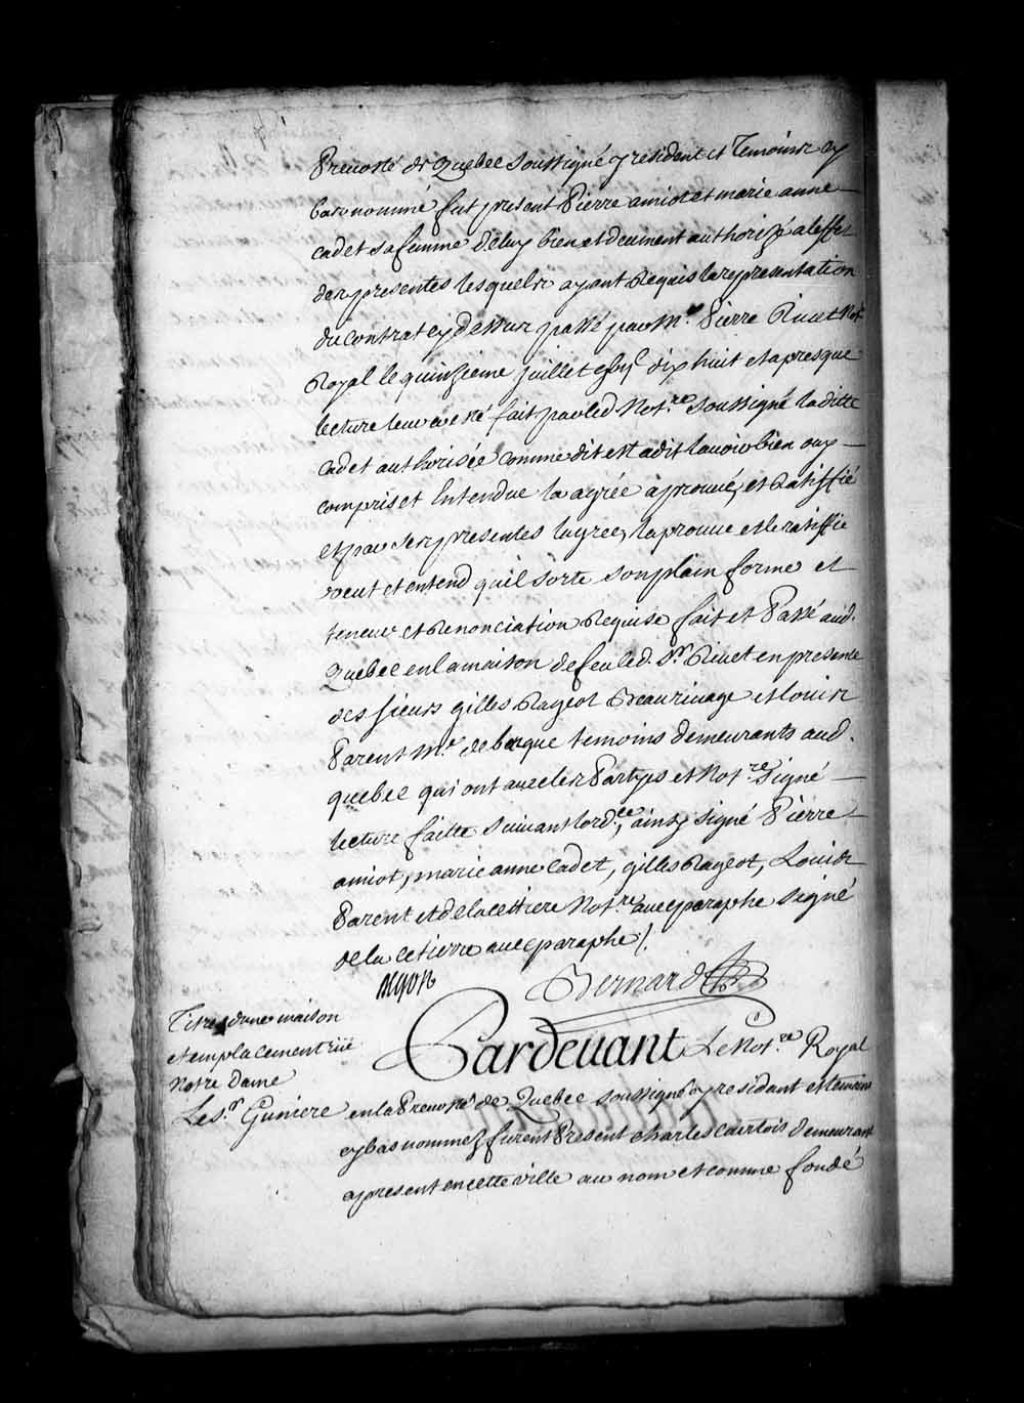 Prevosté de Quebec soussigné y resident et temoins cy
bas nommé fut present Pierre amiot et marie anne
cadet sa femme de luy bien et deument authorizé a leffet
des presentes lesquels ayant Requis la representation
du contrat cy dessus passé par Mr. Pierre Rivet Notre
Royal le quinzieme juillet dix huit et apres que
lecture leur a eté fait par led Notre. soussigné la ditte
cadet authorisée comme dit est a dit lavoir bien ouy
compris et Entendue la agrée aprouvé, et Ratiffié
et par ses presentes lagree, laprouve et le ratiffie
veut et entend quil sorte son plain forme et
teneur et Renonciation Requise fait et Passé aud.
Quebec en la maison de feu led. Sr. Rivet en presence
des sieurs gilles Rageot Beaurivage et louis
Parent Me. de barque temoins demeurants aud.
quebec qui ont avec les Partyes et Notre. signé
lecture faitte suivant lordce, ainsy signé Pierre
amiot, marie anne Cadet, gilles Rageot, Louis
Parent et de la cetiere Notre. avec paraphe signé
de la Cetierre avec paraphe /.
Begon
Bernard
Titre dune maison
et emplacement rüe
Notre Dame
Le Sr.
Pardevant Le Notre. Royal
en la Prevosté de Quebec soussigné y residant et temoins
cy bas nommez furent Present charles courtois demeurant
a present en cette ville au nom et comme fondé